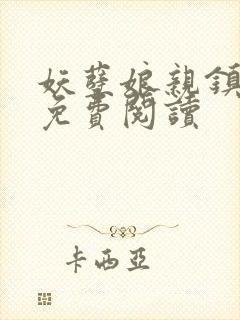 妖孽娘親鎮
免費閱讀
卡西亞